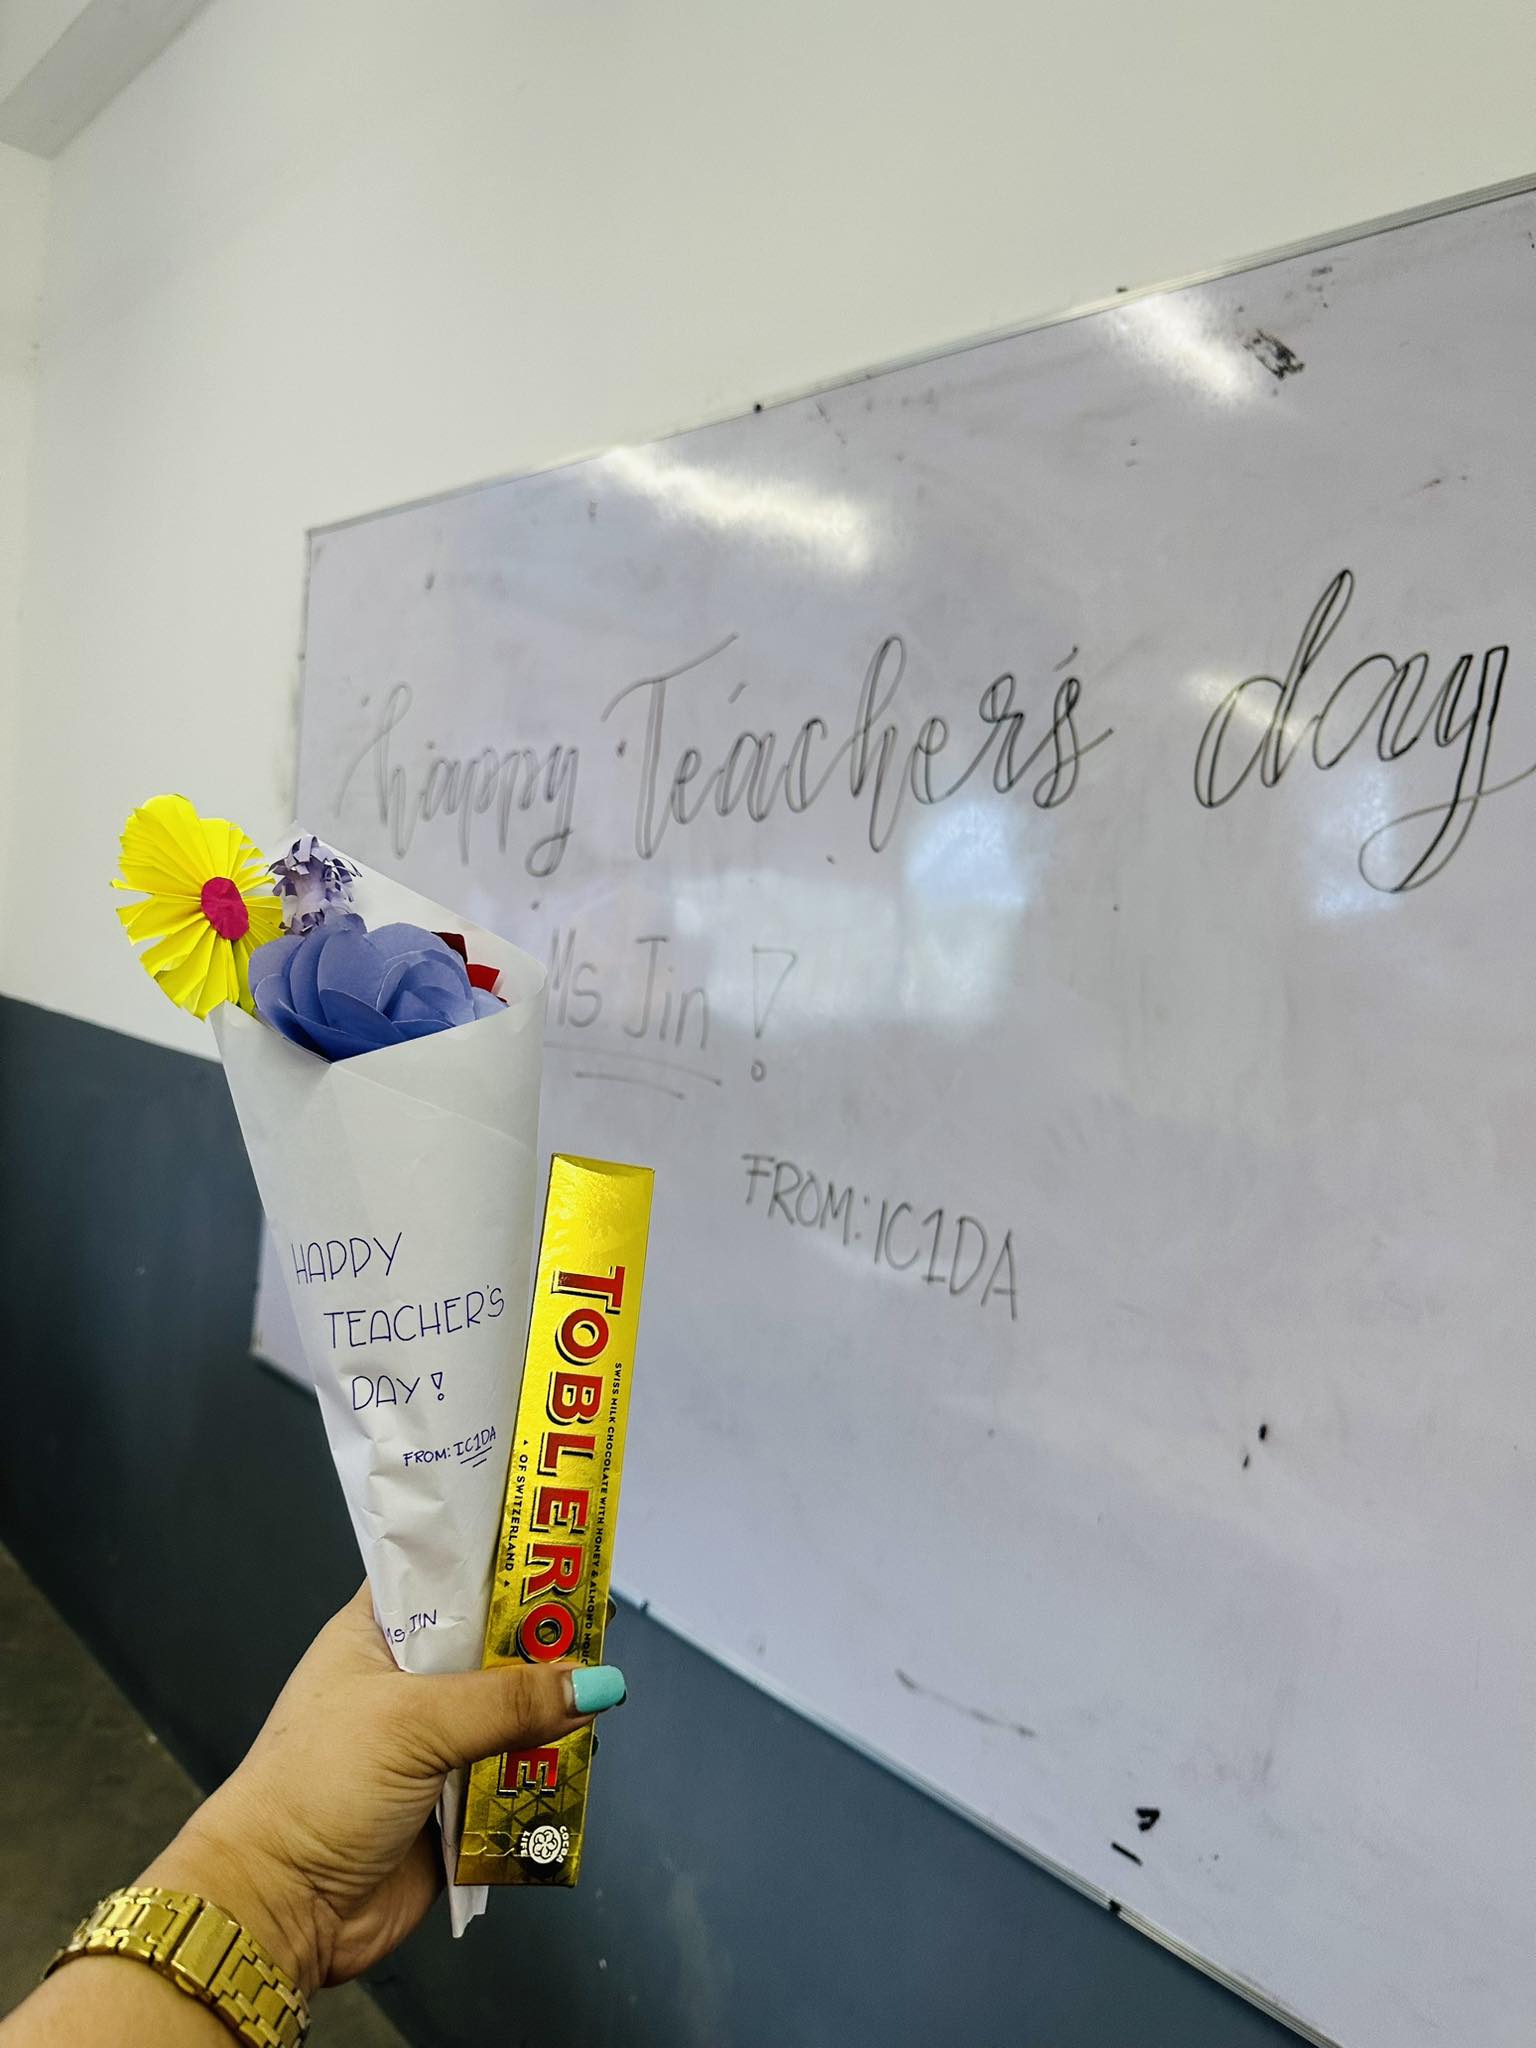 happy Teacher's day
Ms Jin!
FROM: IC1DA
HAPPY
TEACHER'S
DAY!
FROM: IC1DA
Ms JIN
TOBLERONE
SWISS MILK CHOCOLATE WITH HONEY & ALMOND
OF SWITZERLAND
COCOA
LIFE